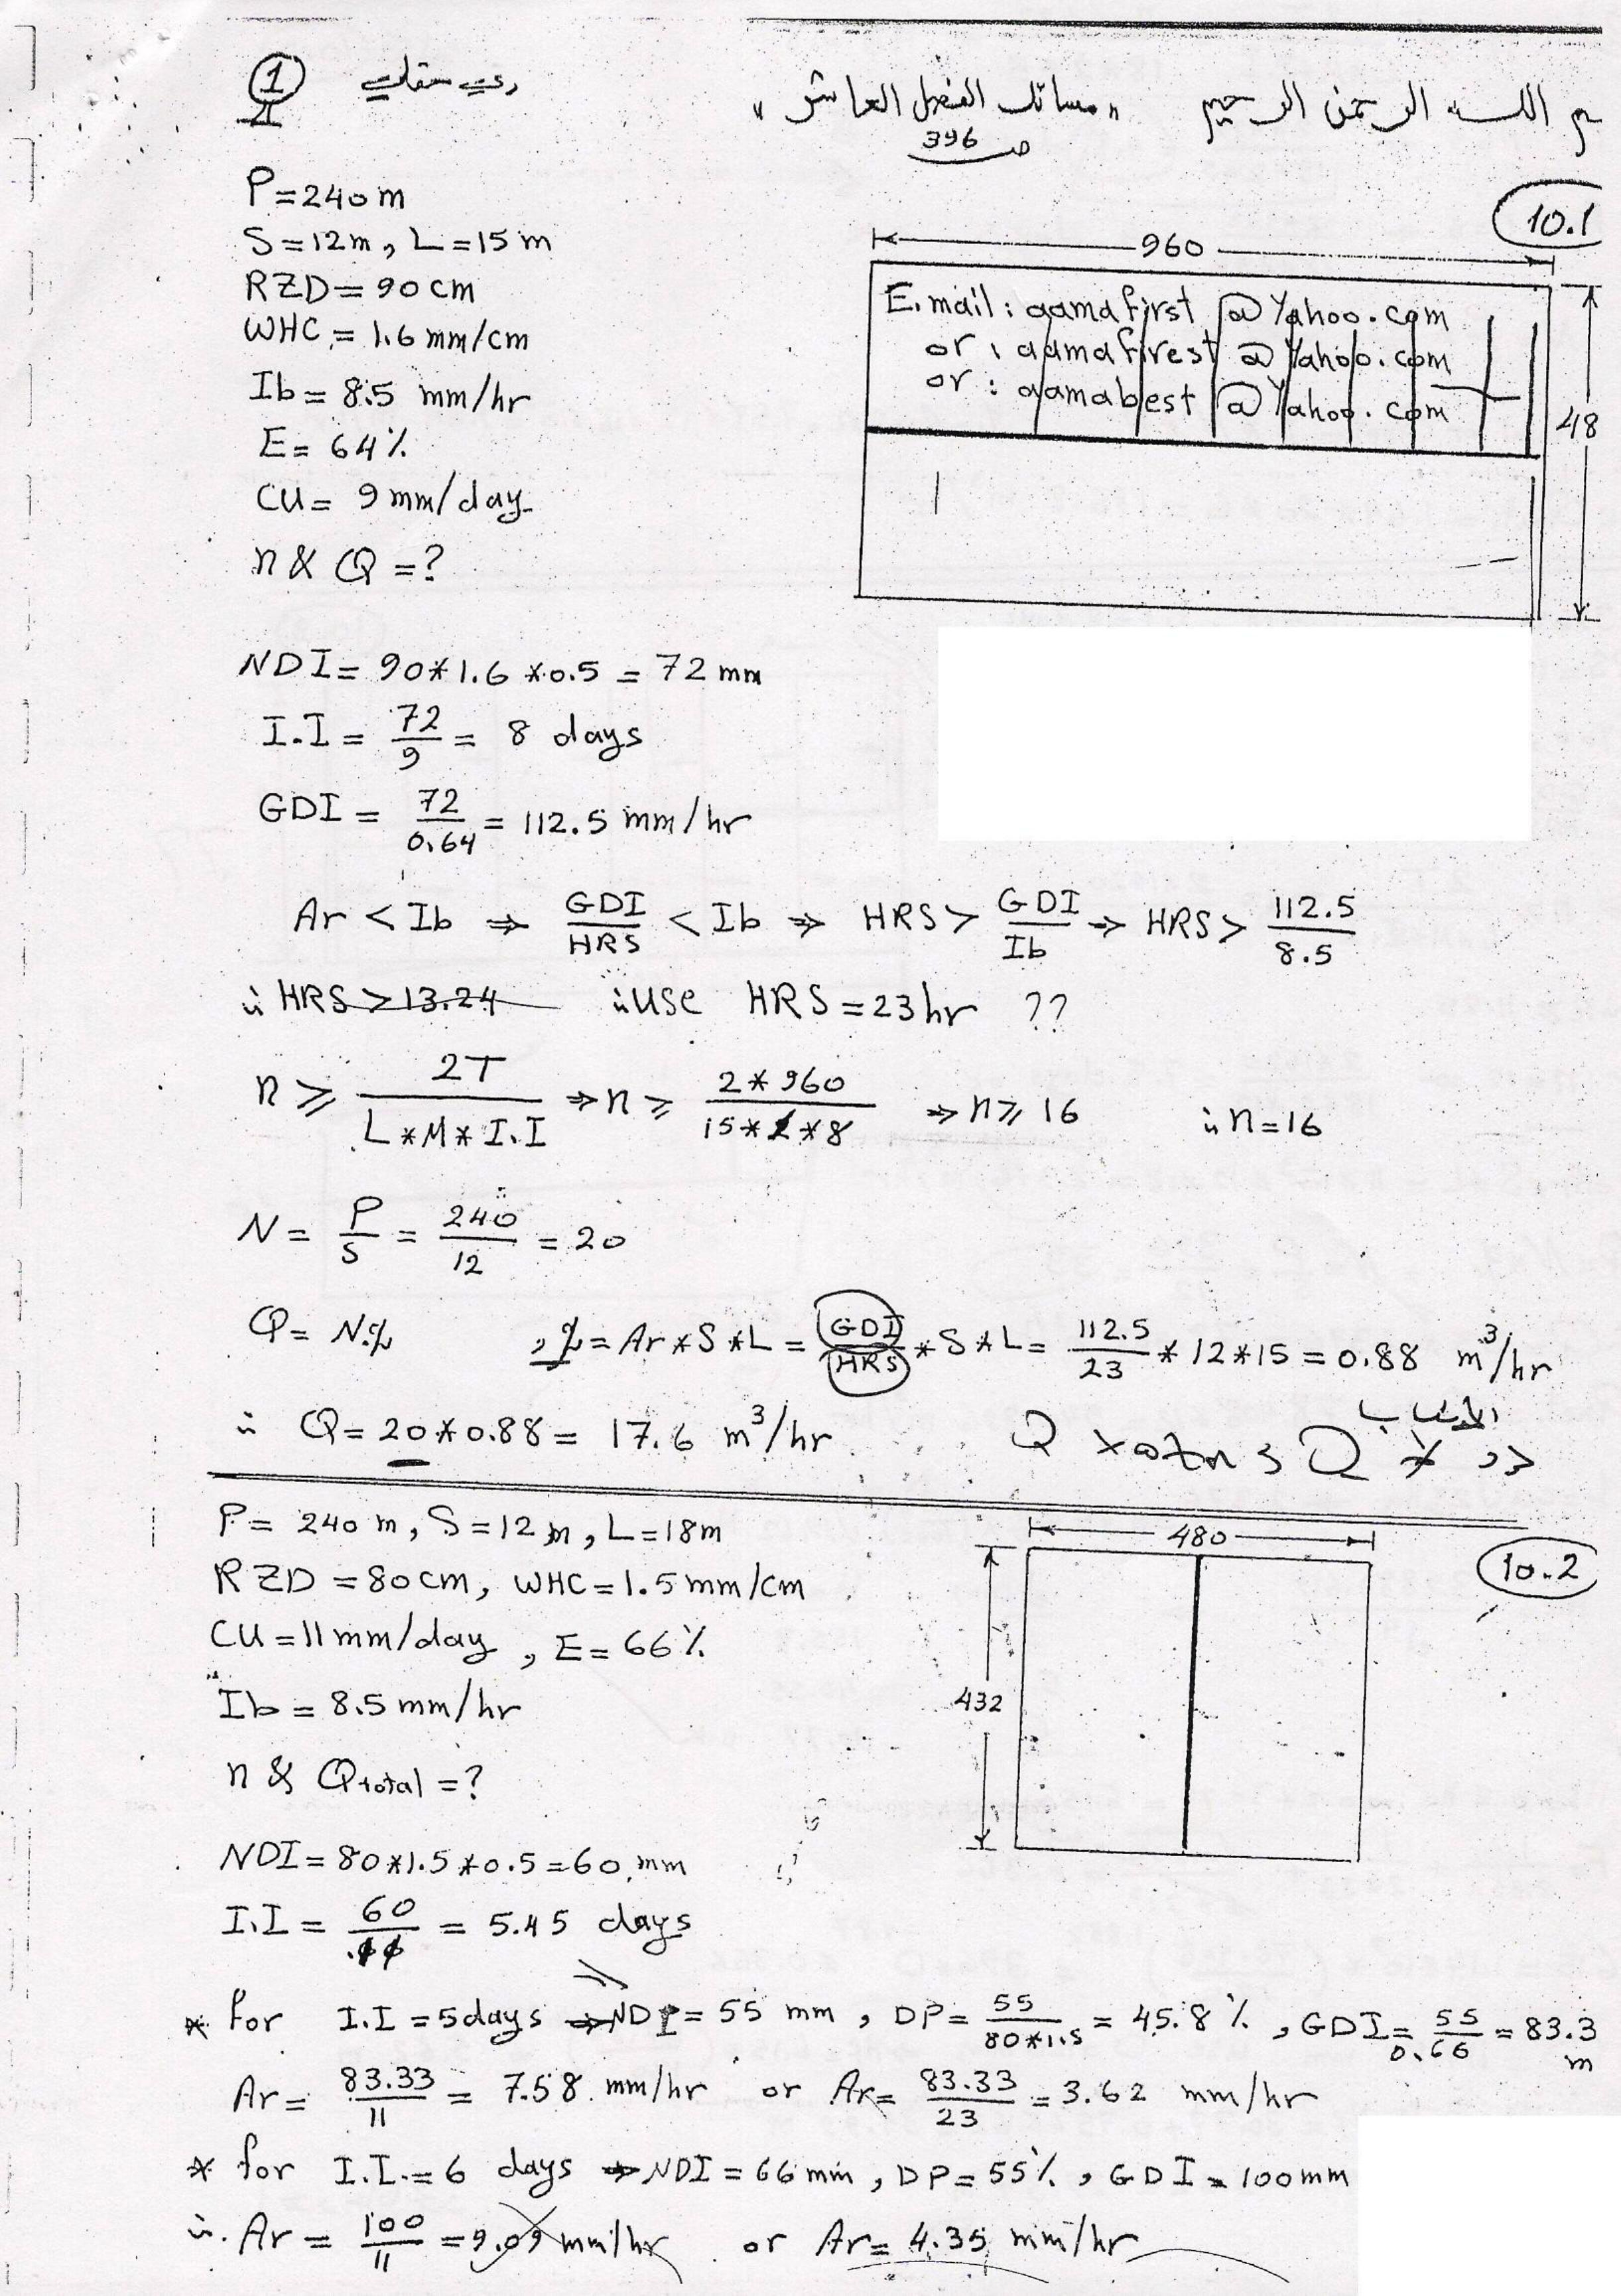 بسم الله الرحمن الرحيم " مسائل الفصل العاشر " ري حقلي 1
ص 396
10.1
P=240m
S=12m, L=15m
960
RZD=90cm
E.mail: qamafirst@Yahoo.com
WHC=1.6mm/cm
or: qamafirest@Yahoo.com
Ib=8.5 mm/hr
or: qamabest@Yahoo.com
48
E=64%
CU=9mm/day
n & Q=?
NDI=90*1.6*0.5=72mm
I.I=72/9=8 days
GDI=72/0.64=112.5 mm/hr
Ar<Ib ⇒ GDI/HRS<Ib ⇒ HRS>GDI/Ib ⇒ HRS>112.5/8.5
∴ HRS≥13.24 ∴ use HRS=23hr ??
n≥2T/L*M*I.I ⇒ n≥2*960/15*1*8 ⇒ n≥16 ∴ n=16
N=P/S=240/12=20
Q=N.q, q=Ar*S*L=GDI/HRS*S*L=112.5/23*12*15=0.88 m³/hr
∴ Q=20*0.88=17.6 m³/hr
10.2
P=240m, S=12m, L=18m
480
RZD=80cm, WHC=1.5mm/cm
CU=11mm/day, E=66%
Ib=8.5mm/hr
432
n & Qtotal=?
NDI=80*1.5*0.5=60mm
I.I=60/11=5.45 days
* for I.I=5days ⇒ NDI=55 mm, DP=55/80*1.5=45.8%, GDI=55/0.66=83.3 m
Ar=83.33/11=7.58 mm/hr or Ar=83.33/23=3.62 mm/hr
* for I.I.=6 days ⇒ NDI=66mm, DP=55%, GDI=100mm
∴ Ar=100/11=9.09mm/hr or Ar=4.35 mm/hr